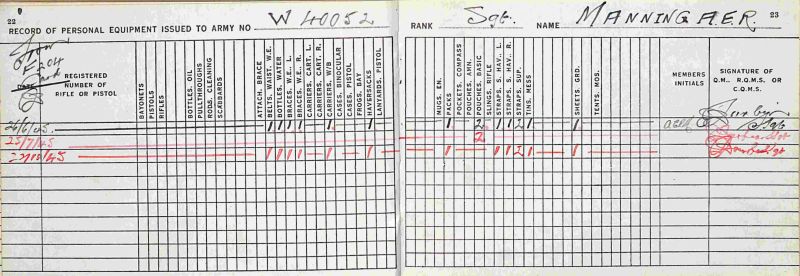 22
RECORD OF PERSONAL EQUIPMENT ISSUED TO ARMY NO W 40052 RANK Sgt. NAME MANNING A.E.R. 23
From
F 204
Card
DATE
REGISTERED
NUMBER OF
RIFLE OR PISTOL
BAYONETS
PISTOLS
RIFLES
BOTTLES, OIL
PULLTHROUGHS
RODS, CLEANING
SCABBARDS
ATTACH. BRACE
BELTS, WAIST, W.E.
BOTTLES, WATER
BRACES, W.E., L.
BRACES, W.E., R.
CARRIERS, CART. L.
CARRIERS, CART. R.
CARRIERS, W/B
CASES, BINOCULAR
CASES, PISTOL
FROGS, BAY
HAVERSACKS
LANYARDS, PISTOL
MUGS, EN.
PACKS
POCKETS, COMPASS
POUCHES, AMN.
POUCHES, BASIC
SLINGS, RIFLE
STRAPS, S. HAV., L.
STRAPS, S. HAV., R.
STRAPS, SUP.
TINS, MESS
SHEETS, GRD.
TENTS, MOS.
MEMBERS
INITIALS
SIGNATURE OF
Q.M., R.Q.M.S. OR
C.Q.M.S.
26/6/45. 1 1 1 1 1 1 1 2 1 1 2 1 1 Sgt
25/7/45 2 Sgt
27/10/45 1 1 1 1 1 1 1 1 1 2 1 1 Sgt